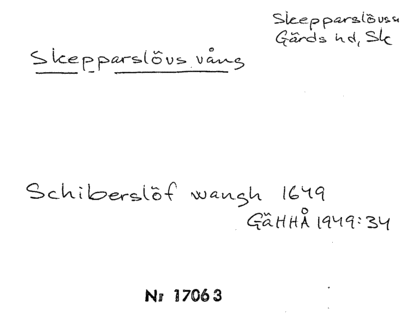 Skepparslövs sn
Gärds hd, Sk
Skepparslövs vång
Schiberslöf wangh 1649
GäHHÅ 1949:34
Nr 17063